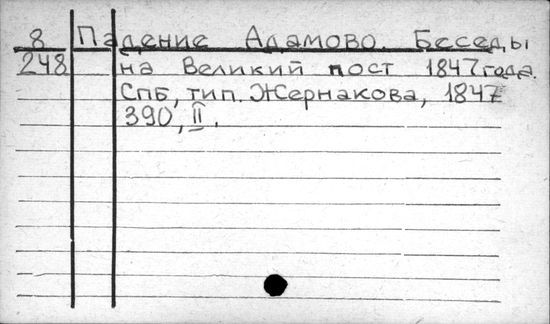 8 Падение Адамово. Беседы
248 на Великий пост 1847 года.
СПБ, тип. Жернакова, 1847
390, II.